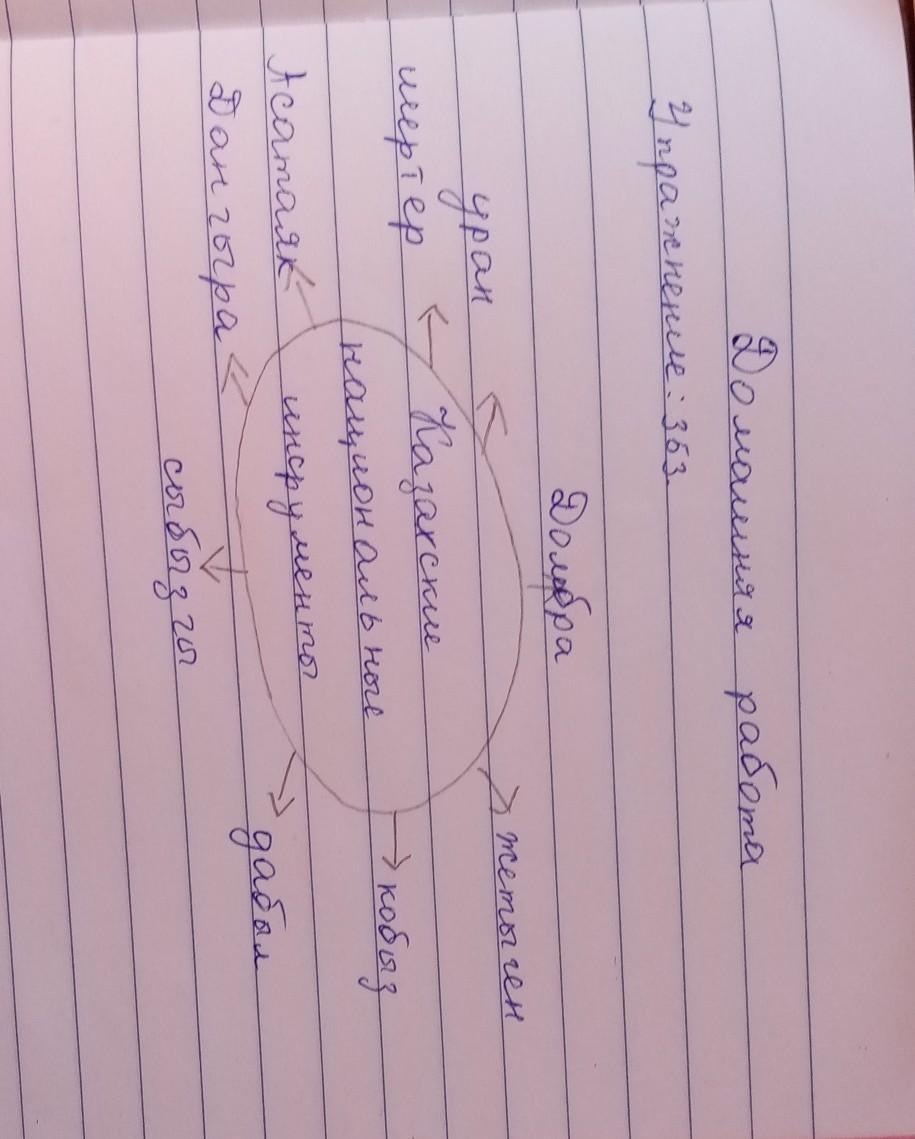 Домашняя работа
Упражнение: 353.
Домбра
уран
жетыген
шертер
Казахские
национальные
инсрументы
кобыз
Асатаяк
дабыл
Дангыра
сыбызгы